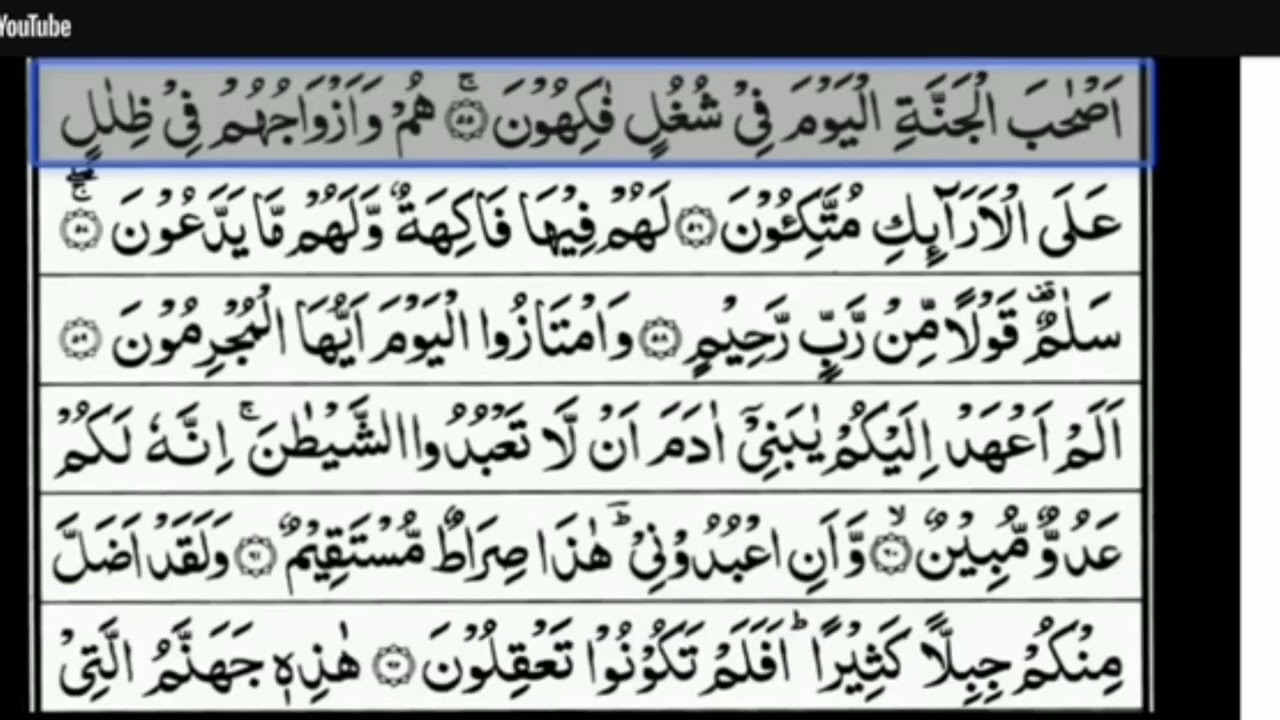 YouTube
اَصْحٰبَ الْجَنَّةِ الْيَوْمَ فِيْ شُغُلٍ فٰكِهُوْنَ ۚ﴿۵۵﴾ هُمْ وَاَزْوَاجُهُمْ فِيْ ظِلٰلٍ
عَلَى الْاَرَآئِكِ مُتَّكِـُٔوْنَ ﴿۵۶﴾ لَهُمْ فِيْهَا فَاكِهَةٌ وَّلَهُمْ مَّا يَدَّعُوْنَ ۚۖ﴿۵۷﴾
سَلٰمٌ ۫ قَوْلًا مِّنْ رَّبٍّ رَّحِيْمٍ ﴿۵۸﴾ وَامْتَازُوا الْيَوْمَ اَيُّهَا الْمُجْرِمُوْنَ ﴿۵۹﴾
اَلَمْ اَعْهَدْ اِلَيْكُمْ يٰبَنِيْۤ اٰدَمَ اَنْ لَّا تَعْبُدُوا الشَّيْطٰنَ ۚ اِنَّهٗ لَكُمْ
عَدُوٌّ مُّبِيْنٌ ۙ﴿۶۰﴾ وَّاَنِ اعْبُدُوْنِيْ ؕ هٰذَا صِرَاطٌ مُّسْتَقِيْمٌ ﴿۶۱﴾ وَلَقَدْ اَضَلَّ
مِنْكُمْ جِبِلًّا كَثِيْرًا ؕ اَفَلَمْ تَكُوْنُوْا تَعْقِلُوْنَ ﴿۶۲﴾ هٰذِهٖ جَهَنَّمُ الَّتِيْ